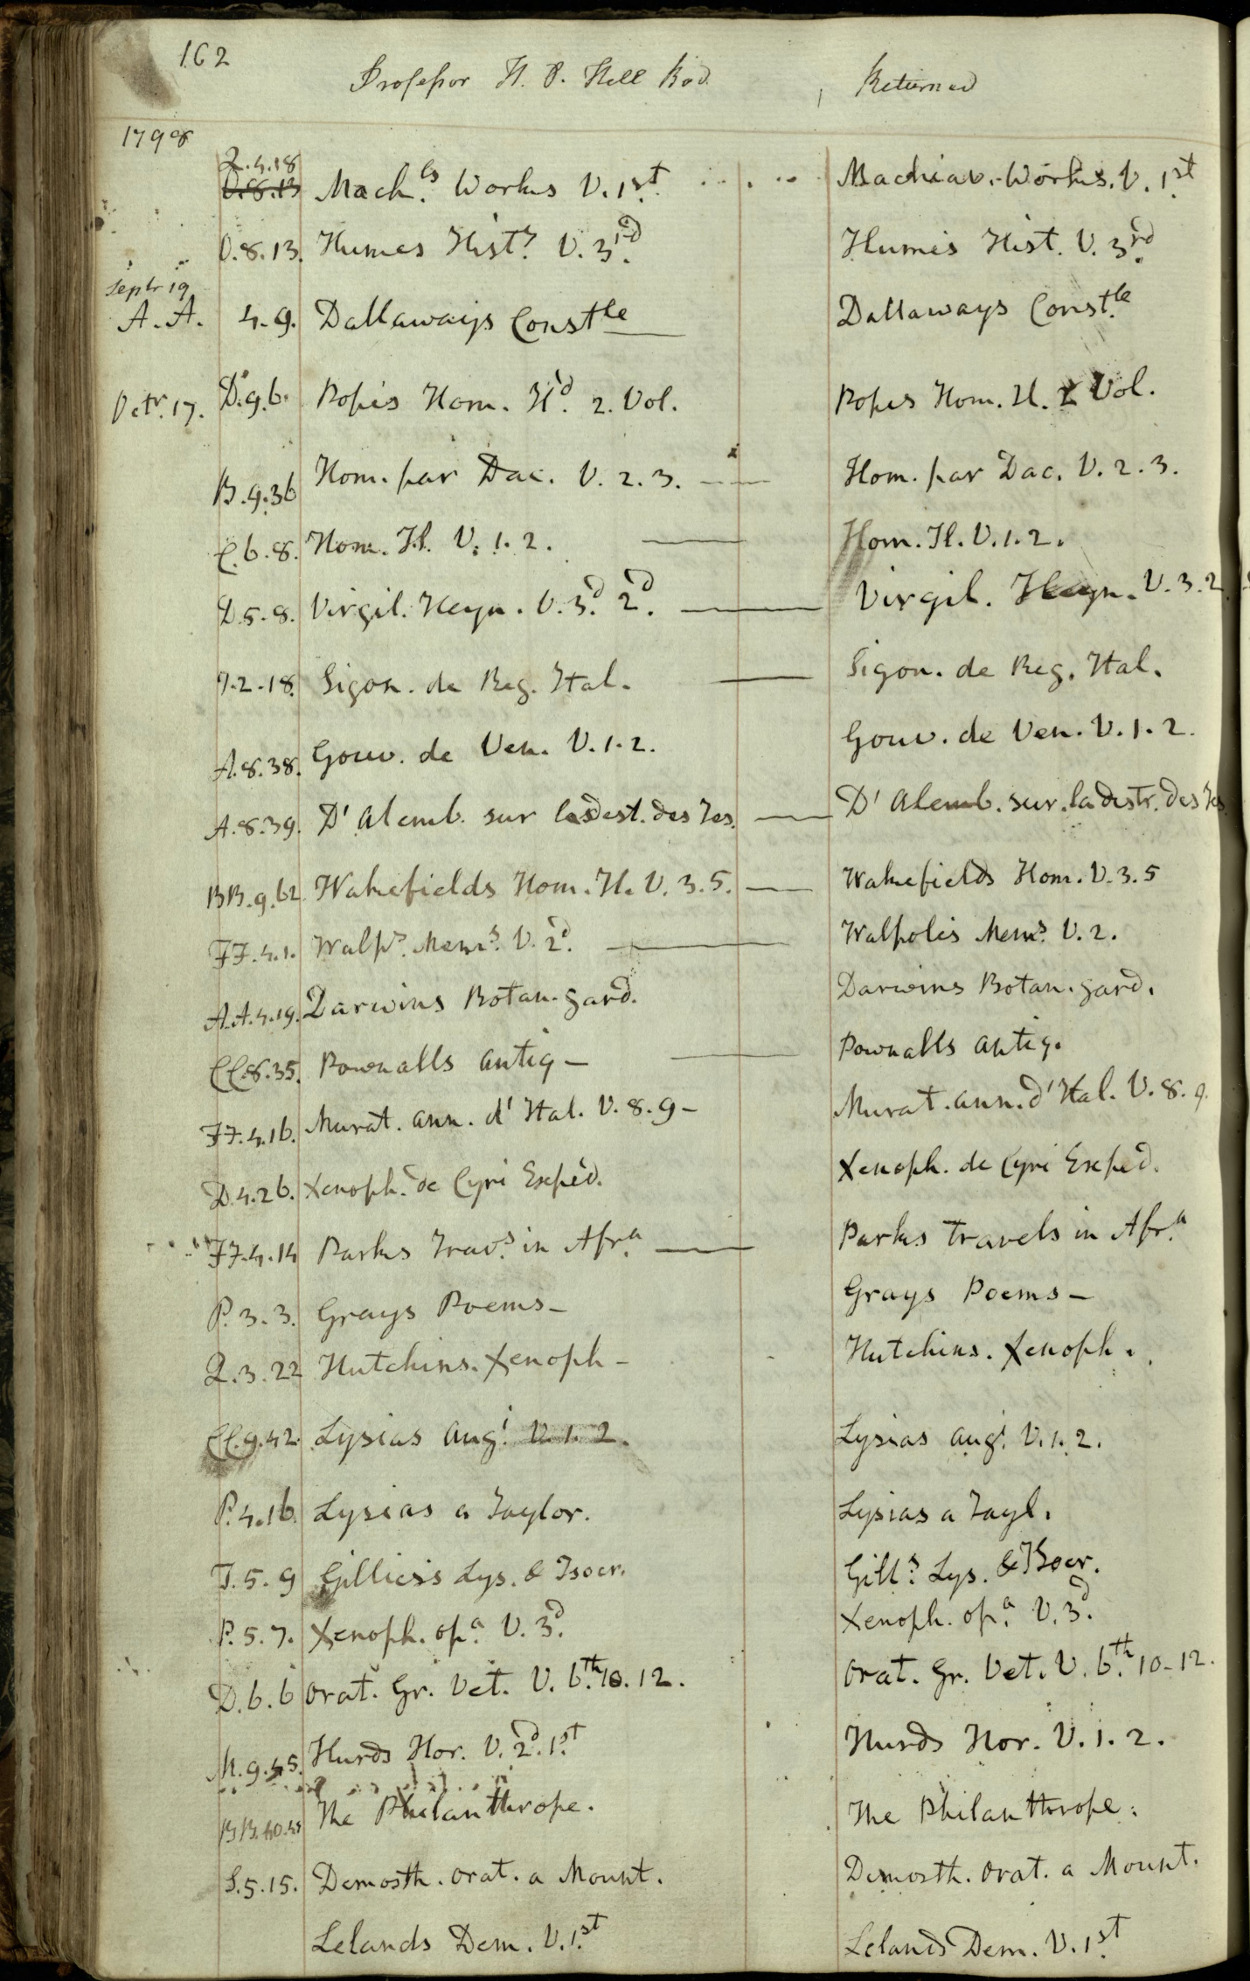 162
Professor H. P. Hill Bod. Returned
1798
Q.4.18
O.8.13 Mach.ls Works V. 1st. Machiav. Works. V. 1st.
O.8.13. Humes Hist.y V. 3rd. Humes Hist. V. 3rd.
Septr 19
A.A. 4.9. Dallaways Constle Dallaways Constle.
Octr. 17. D.9.6. Popes Hom. Il'd. 2. Vol. Popes Hom. Il. 2 Vol.
B.9.36 Hom. par Dac. V. 2. 3. Hom. par Dac. V. 2. 3.
C.6.8. Hom. Il. V. 1. 2. Hom. Il. V. 1. 2.
D.5.8. Virgil. Heyn. V. 3d. 2d. Virgil. Heyn. V. 3. 2
I.2.18. Sigon. de Reg. Ital. Sigon. de Reg. Ital.
A.8.38. Gouv. de Ven. V. 1. 2. Gouv. de Ven. V. 1. 2.
A.8.39. D'Alemb. sur la dest. des Jes. D'Alemb. sur la destr. des Jes
BB.9.62. Wakefields Hom. Il. V. 3. 5. Wakefields Hom. V. 3. 5
FF.4.1. Walp.s Mem.s V. 2d. Walpoles Mem.s V. 2.
AA.4.19. Darwins Botan. gard. Darwins Botan. gard.
CC.8.35. Pownalls Antiq - Pownalls Antiq.
FF.4.16. Murat. ann. d'Ital. V. 8. 9 - Murat. ann. d'Ital. V. 8. 9.
D.4.26. Xenoph. de Cyri Exped. Xenoph. de Cyri Exped.
FF.4.14 Parks Trav.s in Afr.a Parks Travels in Afr.a
P.3.3. Grays Poems - Grays Poems -
Q.3.22 Hutchins. Xenoph - Hutchins. Xenoph.
CC.9.42. Lysias Aug.i V. 1. 2. Lysias Aug.i V. 1. 2.
P.4.16. Lysias a Taylor. Lysias a Tayl.
I.5.9 Gillies's Lys. & Isocr. Gill.s Lys. & Isocr.
P.5.7. Xenoph. op.a V. 3d. Xenoph. op.a V. 3d.
D.6.6 Orat. Gr. Vet. V. 6.th 10. 12. Orat. Gr. Vet. V. 6.th 10. 12.
M.9.45. Hurds Hor. V. 2d. 1st. Hurds Hor. V. 1. 2.
The Philanthrope. The Philanthrope.
S.5.15. Demosth. Orat. a Mount. Demosth. Orat. a Mount.
Lelands Dem. V. 1st. Lelands Dem. V. 1st.